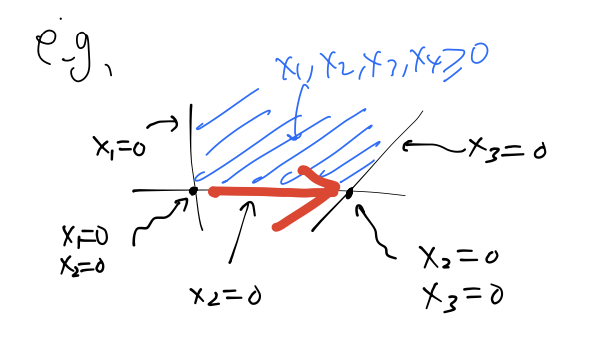 e.g,
x₁, x₂, x₃, x₄ ≥ 0
x₁=0
x₃=0
x₁=0
x₂=0
x₂=0
x₂=0
x₃=0